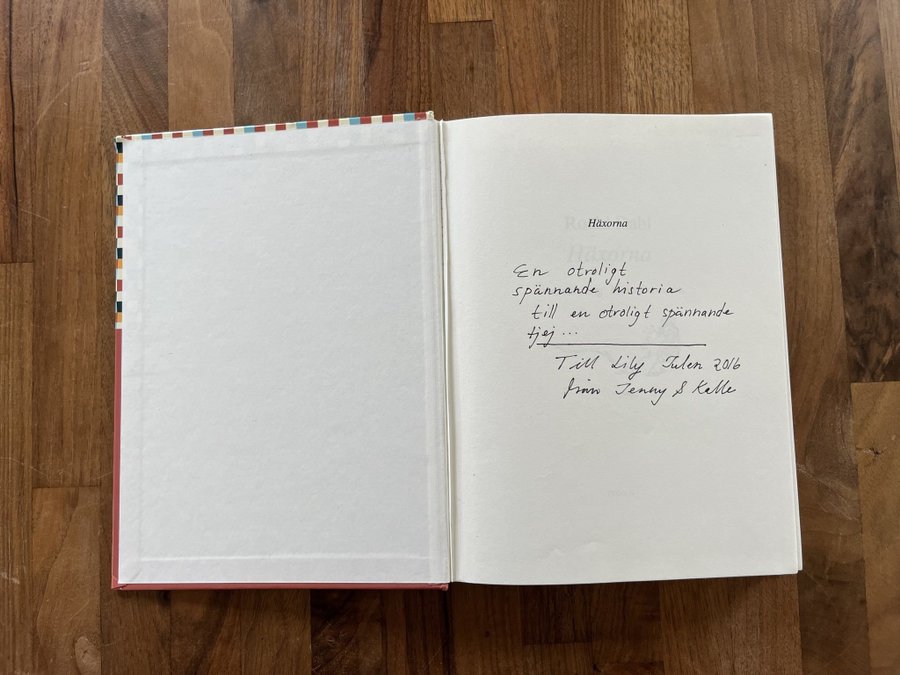 Häxorna
En otroligt
spännande historia
till en otroligt spännande
tjej...
Till Lily Julen 2016
från Jenny & Kalle